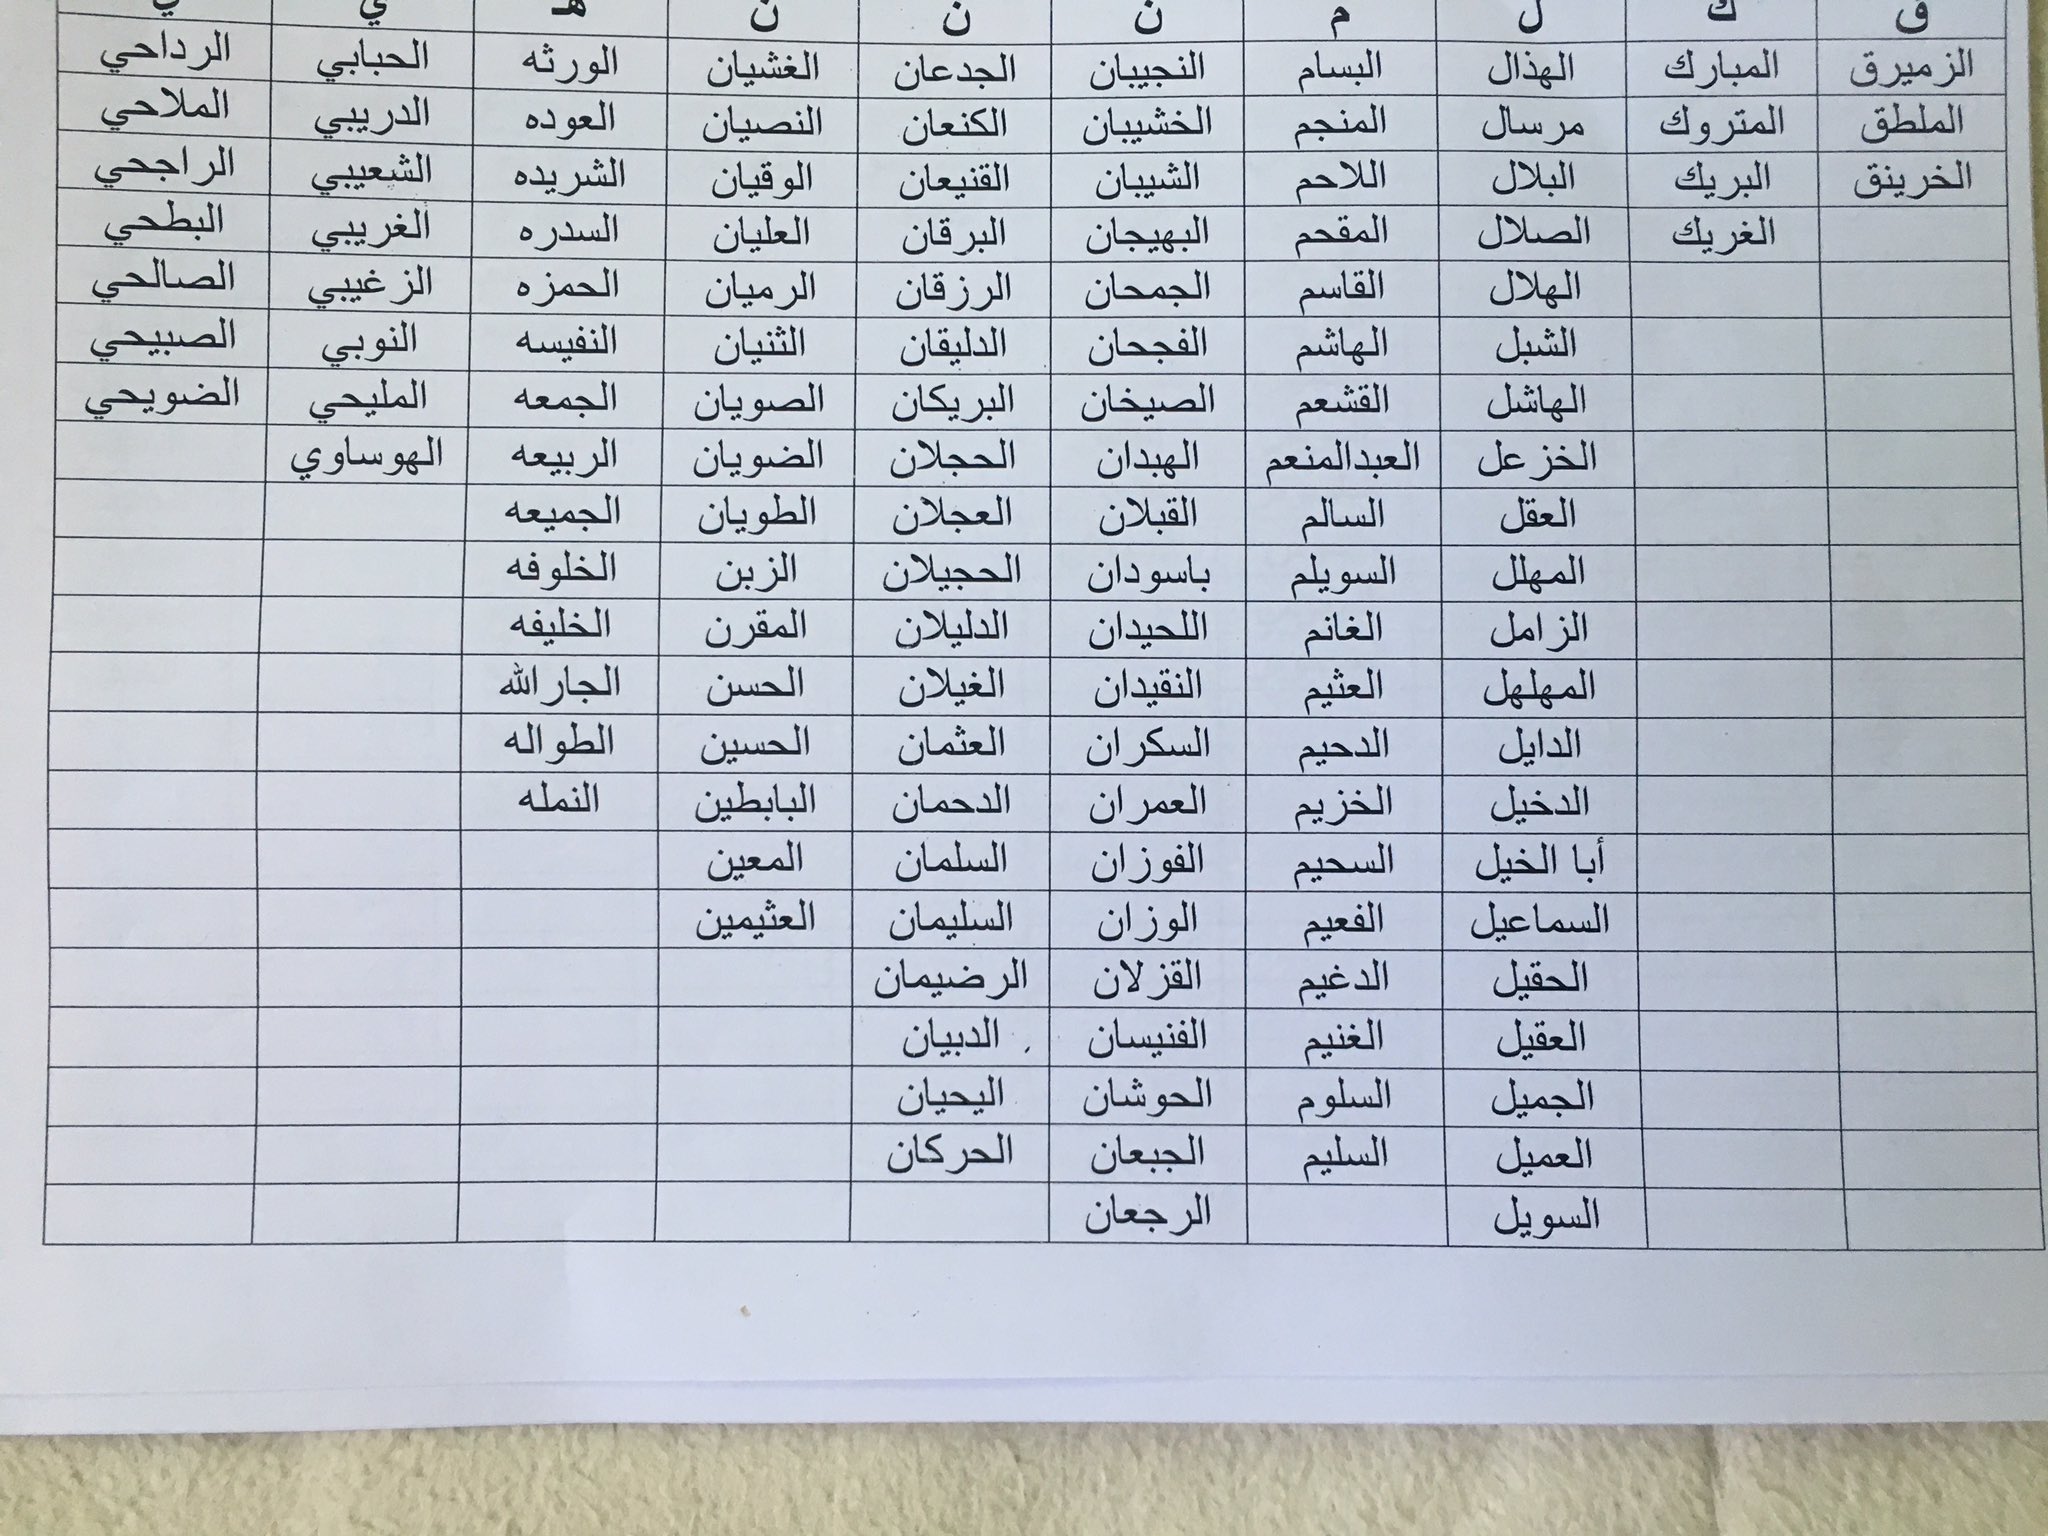 ق ك ل م ن ن ن هـ ي ي
الزميرق المبارك الهذال البسام النجيبان الجدعان الغشيان الورثه الحبابي الرداحي
الملطق المتروك مرسال المنجم الخشيبان الكنعان النصيان العوده الدريبي الملاحي
الخرينق البريك البلال اللاحم الشيبان القنيعان الوقيان الشريده الشعيبي الراجحي
الغريك الصلال المقحم البهيجان البرقان العليان السدره الغريبي البطحي
الهلال القاسم الجمحان الرزقان الرميان الحمزه الزغيبي الصالحي
الشبل الهاشم الفجحان الدليقان الثنيان النفيسه النوبي الصبيحي
الهاشل القشعم الصيخان البريكان الصويان الجمعه المليحي الضويحي
الخزعل العبدالمنعم الهبدان الحجلان الضويان الربيعه الهوساوي
العقل السالم القبلان العجلان الطويان الجميعه
المهلل السويلم باسودان الحجيلان الزبن الخلوفه
الزامل الغانم اللحيدان الدليلان المقرن الخليفه
المهلهل العثيم النقيدان الغيلان الحسن الجارالله
الدايل الدحيم السكران العثمان الحسين الطواله
الدخيل الخزيم العمران الدحمان البابطين النمله
أبا الخيل السحيم الفوزان السلمان المعين
السماعيل الفعيم الوزان السليمان العثيمين
الحقيل الدغيم القزلان الرضيمان
العقيل الغنيم الفنيسان الدبيان
الجميل السلوم الحوشان اليحيان
العميل السليم الجبعان الحركان
السويل الرجعان